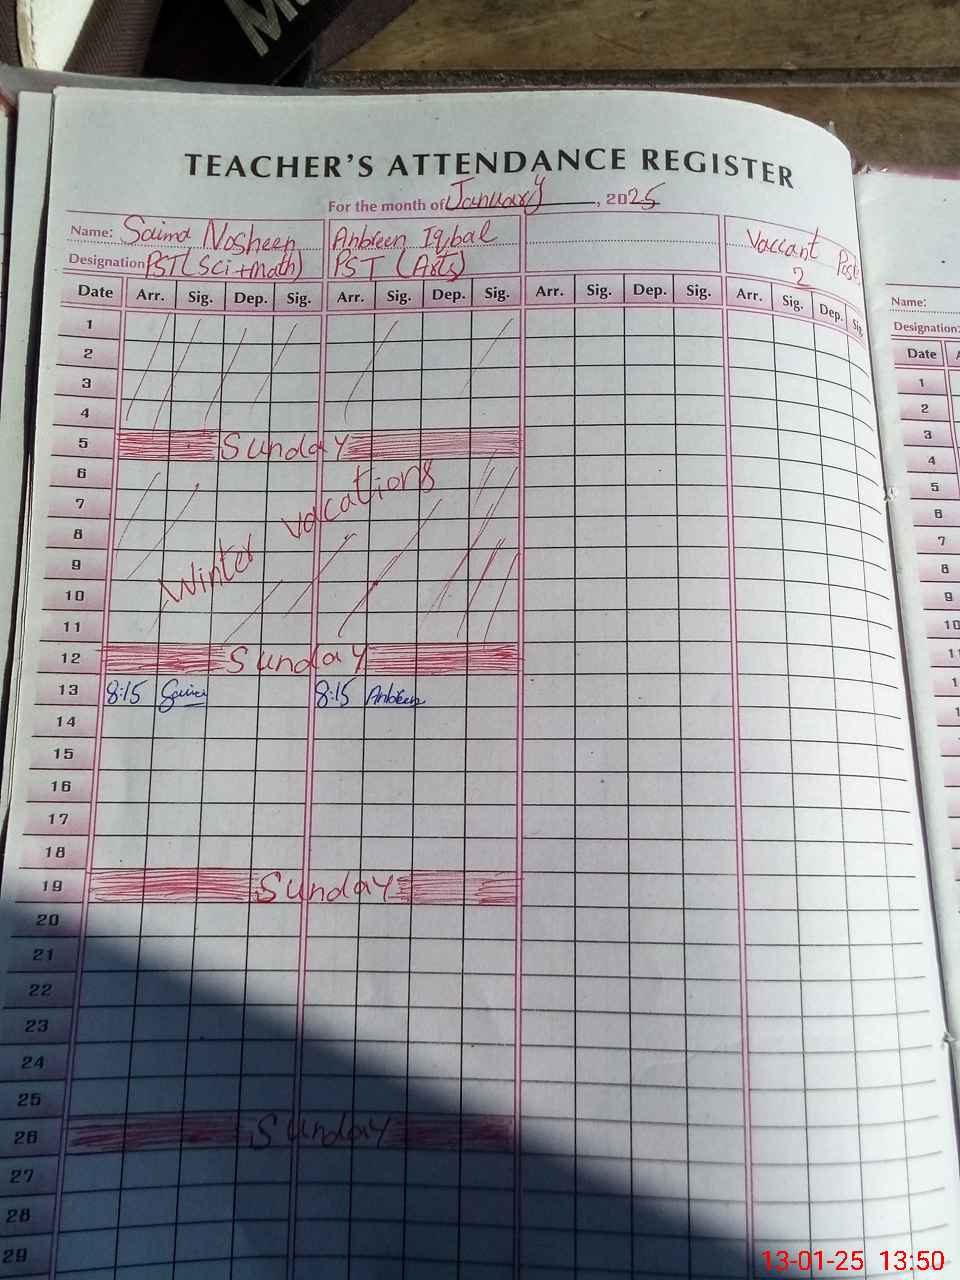 TEACHER'S ATTENDANCE REGISTER
For the month of January, 2025
Name: Saima Nosheen Anbreen Iqbal Vaccant Post
Designation PST(Sci+Math) PST (Arts) 2
Date Arr. Sig. Dep. Sig. Arr. Sig. Dep. Sig. Arr. Sig. Dep. Sig. Arr. Sig. Dep. Sig.
1
2
3
4
5 Sunday
6
7
8
9
10
11
Winter vacations
12 Sunday
13 8:15 Saima 8:15 Anbreen
14
15
16
17
18
19 Sunday
20
21
22
23
24
25
26 Sunday
27
28
29
Name:
Designation:
Date
1
2
3
4
5
6
7
8
9
10
13-01-25 13:50